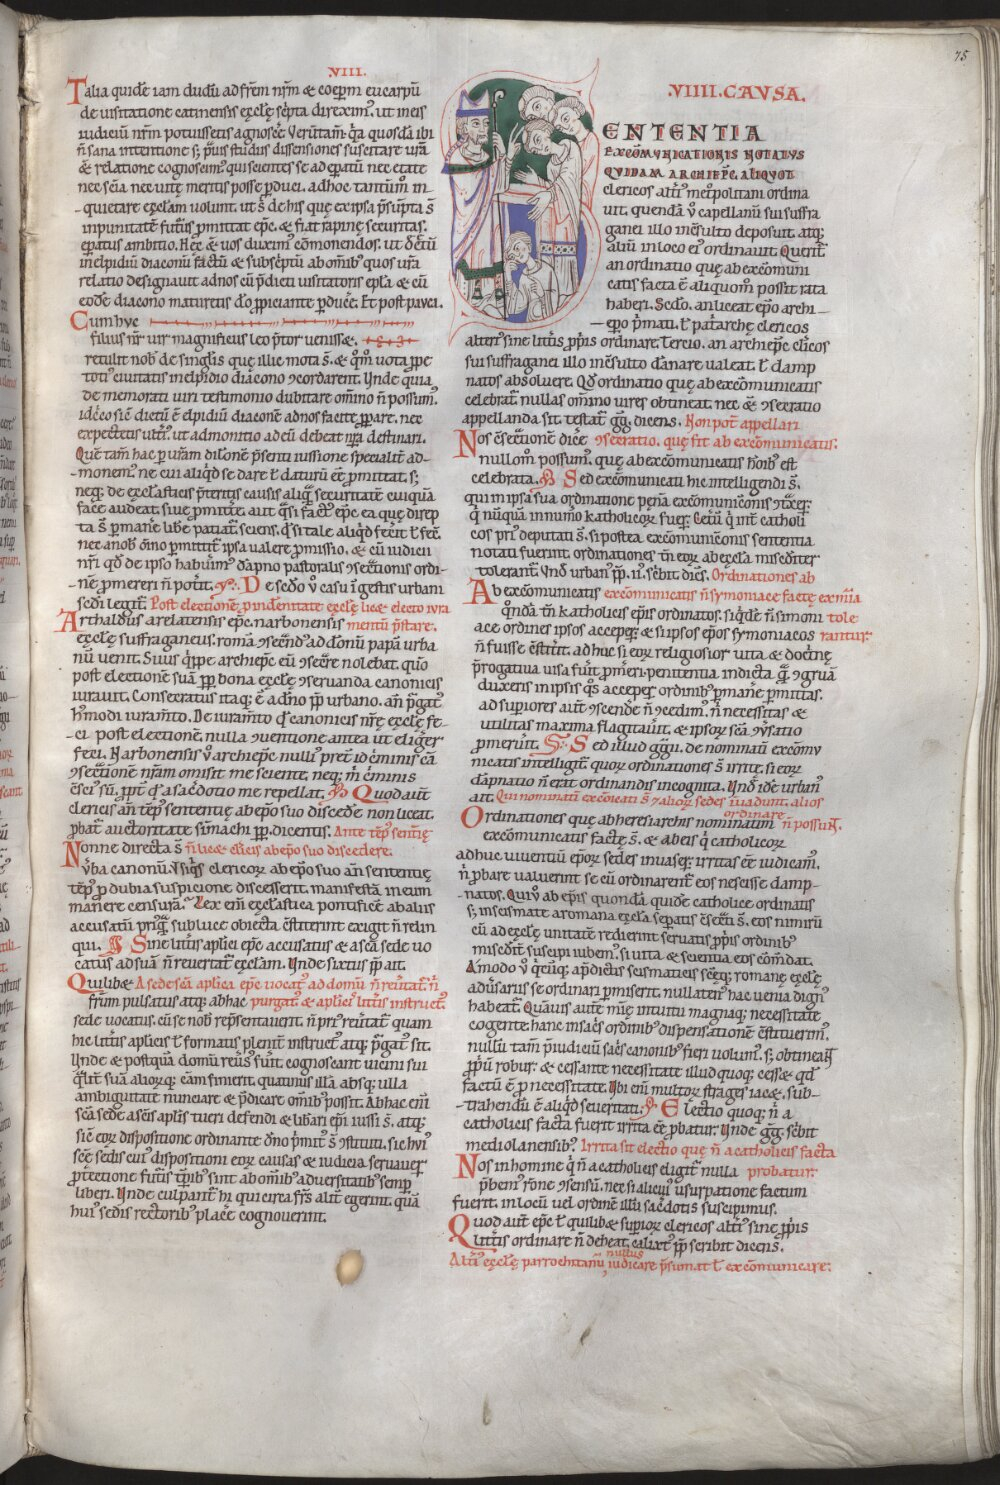 75
VIII.
Talia quidē iam dudū ad frēm nrm̄ & coepm̄ eucarpū
de uisitatione catinensis ęcclę sc̄pta direxim᷒. ut in eis
iudiciū nrm̄ potuissetis agnoscē. Verūtam̄ quosdā ibi
n̄ sana intentione s; p̄uis studiis dissensiones suscitare
& relatione cognoscim᷒ qui scientes se ad ep̄atū nec etate
nec sc̄ia nec uitę meritis posse p̄duci. adhoc tantūm̄ in-
quietare ęcclam uolunt. ut s̄ de his quę ex ipsa p̄sūpta s̄
inpunitatē futur̄is p̄mittat ep̄c. & fiat rapinę securitas.
ep̄atus ambitio. & uos duxim᷒ cōmonendos. ut
in elpidiū diaconū factū & subsc̄ptū ab om̄ib᷒ quos
relatio designauit ad nos eū p̄dicti uisitatoris ep̄la & cū
eodē diacono maturetis dō p̄piciante p̄ducē. Et post pauca.
Cum hęc
filius nr̄ uir magnificus leo p̄tor uenisse.
retulit nob᷒ de singulis quę illic mota s̄. & qm̄ uota p̄pe
toti᷒ ciuitatis in elpidio diacono ꝯcordarent. Unde quia
de memorati uiri testimonio dubitare om̄ino n̄ possum᷒.
idcirco sic̄ dictū ē elpidiū diaconē ad nos facite p̄pare. nec
expectetis ult̄i᷒. ut admonitio ad eū debeat nr̄a destinari.
Quē tam̄ hac p̄ ur̄am dil̄onē p̄senti iussione specialit̄ ad-
monem᷒. ne cui aliqd se dare t̄ daturū ēē p̄mittat. s;
neq; de ęcclasticis p̄teritis causis aliquā securitatē cuiquā
face audeat. siue p̄mittere. aut q̄si fact᷒ ep̄c ea quę direp
ta s̄ p̄manē liƀe patiat᷒. sciens. qđ si tale aliqd fec̄it t̄ fec̄.
nec a nob̄ om̄ino p̄mittit᷒ ipsa ualere p̄missio. & eū iudicii
nr̄i qđ de ipso habuim᷒ dāpno pastoralis ꝯsec̄tionis ordi-
nē p̄mereri n̄ potit. De sedo ū casu in gestis urbani
sedi legit᷒. Post electionē p̄uidentiatē ęcclę licet electo iura
Arthaldus arelatensis epc̄. narbonensis mentū p̄stare.
ęcclę suffraganeus. romā ꝯsecrand᷒ ad donū papā urba
nū uenit. Suus q̄ppe archiep̄c eū ꝯsecr̄e nolebat. quo
post electionē suā p̄p̄ bona ęcclę ꝯseruanda canonicis
iurauit. Consecratus itaq; ē a dn̄o pp̄ urbano. an̄ p̄gat᷒
h᷒modi iuram̄to. De iuram̄to qđ canonicis nr̄ę ęcclę fe-
ci post electionē. nulla ꝯuentione antea ut eliger̄
feci. Narbonensis ū archiep̄c null᷒ pret̄ id c̄minis cā
ꝯsec̄tionē nr̄am omisit me sciente. neq; m̄ c̄minis
c̄sci᷒ sū. pp̄t qđ a sac̄dotio me repellat. Quod aut̄
clerici an̄ temp᷒ sententię ab ep̄o suo disced̄e non liceat.
p̄bat᷒ auctoritate simachi pp̄. dicentis. Ante temp᷒ sentn̄ę
Nonne directa s̄ n̄ licet cl̄icis ab ep̄o suo discedere.
uba canonū. Vsiq̄s clericor᷒ ab ep̄o suo an̄ sententię
temp᷒ p̄ dubia suspicione discesserit. manifestā in eum
manere censurā. Lex eni᷒ ęcclasticā pontificē ab aliis
accusatū pri᷒quā sub luce obiecta c̄stiterint exigit n̄ relin
qui. Sine litt̄is apl̄ici epc̄ accusatus & a sc̄a sede uo
catus ad suā n̄ reuertat᷒ ęcclam. Unde sixtus pp̄ ait.
Quilibet A sede sc̄a aplica epc̄ uocat᷒ ad domū n̄ reu̅tat᷒. n̄
frūm pulsatus atq; ab hac purgat᷒ & aplicis litt̄is instruct᷒.
sede uocatus. cū se nob̄ rep̄sentauerit. n̄ pri᷒ reu̅tat᷒ quam
hic litt̄is aplicis t̄ formatis plenit̄ instruct᷒ atq; p̄gat᷒ sit.
Unde & postquā domū reu̅s᷒ fu̅it. cognoscant uicini sui
q̄lit̄ suā aliorq; cām finierit. quatinus illā absq; ulla
ambiguitate nunciare & p̄dicare om̄ib᷒ possit. Ab hac eni᷒
sc̄a sede a sc̄is apl̄is tueri defendi & liƀari ep̄i iussi s̄. atq;
sic̄ eor᷒ dispositione ordinante dn̄o p̄mit᷒ s̄ ꝯstituti. sic hui᷒
sc̄ę sedis cui᷒ dispositioni eor᷒ causas & iudicia seruauer̄
p̄tectione futuris tp̄ib᷒ sint ab om̄ib᷒ aduersitatib᷒ semp̄
liberi. Unde culpant᷒ hi qui circa fr̄s alit̄ egerint. quā
hui᷒ sedis rectorib᷒ placē cognouerint.
.VIIII. CAVSA.
SENTENTIA
EXCOMVNICATIONIS NOTATVS
QVIDAM ARCHIEPC̄. ALIQVOT
clericos alt̄i᷒ metropolitani ordina
uit. quendā ū capellanū sui suffra
ganei illo incōsulto deposuit. atq;
aliū in loco ei᷒ ordinauit. Querit᷒
an ordinatio quę ab excōmuni
catis facta ē aliquom̄ possit rata
haberi. Sc̄do. an liceat ep̄o archi
ep̄o p̄mati. t̄ pat̄archę clericos
alteri᷒ sine litt̄is p̄p̄iis ordinare. Tercio. an archiep̄c cl̄icos
sui suffraganei illo incōsulto dānare ualeat. t̄ damp
natos absoluere. Qđ ordinatio quę ab excōmunicatis
celebrat᷒ nullas om̄ino uires obtineat. nec & ꝯsecratio
appellanda sit. testat᷒ gg̅. dicens. Non pot᷒ appellari
Nos c̄sec̄tionē dicē ꝯsecratio. quę fit ab excōmunicatis.
nullom̄ possum᷒. quę ab excōmunicatis hoīƀ est
celebrata. Sed excōmunicati hic intelligendi s̄.
qui in ipsa sua ordinatione pęna excōmunic̄onis ꝯtxer̄;
q̄ nūquā in num̄o katholicor᷒ fuer̄. Cet̄ū q̄ int̄ catholi
cos pri᷒ deputati s̄. si postea excōmunic̄onis sententia
notati fuerint. ordinationes tn̄ eor᷒ ab ęcclesia misedit̄
tolerant᷒. Vnđ urban᷒ pp̄. ii. sc̄bit dic̄s. Ordinationes ab
Ab excōmunicatis excōmunicatis n̄ symoniace factę ex mia
q̄nda tn̄ katholicis ep̄is ordinatos. siqđē n̄ simoni tole
ace ordines ipsos acceper̄. & si ipsos ep̄os symoniacos rantur
n̄ fuisse c̄stit̄it. ad huc si eor᷒ religiosior uita & doctnę
p̄rogatiua uisa fu̅it p̄meri. penitentia indicta ꝯgruā
duxeris in ipsis q̄s acceper̄ ordinib᷒ p̄manē p̄mittas.
ad supiores aut̄ ꝯscendē n̄ ꝯcedim᷒. n̄ necessitas &
utilitas maxima flagitau̅it. & ipsor᷒ sc̄a ꝯu̅satio
p̄meru̅it. Sed illud ggii. de nominatī excōmu
nicatis intelligit᷒ quor᷒ ordinationes s̄ irritę. si eor᷒
dāpnatio n̄ erat ordinandis incognita. Unđ ide᷒ urban
ait. Qui nominatī excōicati s̄ & alior᷒ sedes iu̅adunt. alios
Ordinationes quę ab heresiarchis nominatim n̄ possunt. ordinare
excōmunicatis factę s̄. & ab eis q̄ catholicor᷒
ad huc uiuentiū ep̄or᷒ sedes inuaser̄. irritas ēē iudicam᷒.
n̄ p̄bare ualuerint se cū ordinarent᷒ eos nescisse damp-
natos. Qui ū ab ep̄is quondā quidē catholice ordinatis
s; in scismate a romana ęcclā sep̄atis c̄sec̄ti s̄. eos nimirū
cū ad ęcclę unitatē redierint seruatis p̄p̄iis ordinib᷒
misedit᷒ suscipi iubem᷒. si uita & scientia eos cōmdat.
Amodo ū q̄cūq; a p̄dictis scismaticis sęcq; romanę ęcclę
adu̅sariis se ordinari p̄miserit. nullaten᷒ hac uenia dign᷒
habeat᷒. Quāuis aut̄ mi̅ę intuitu magnaq; necessitate
cogente. hanc in sac̄is ordinib᷒ dispensationē c̄stituerim᷒.
nullū tam̄ p̄iudiciū sac̄is canonib᷒ fieri uolum᷒. s; obtineant
p̄p̄ū robur. & cessante necessitate illud quoq; cesset qđ
factū ē p̄ necessitate. Ubi eni᷒ multor᷒ strages iacet. sub-
trahendū ē aliqd seueritati. Electio quoq; n̄ a
catholicis facta fuerit irrita ēē p̄batur. Unde gg. sc̄bit
mediolanensib᷒. Irrita sit electio quę n̄ a catholicis facta
Nos in homine q̄ n̄ a catholicis eligit᷒ nulla probatur.
p̄bem᷒ r̄one ꝯsensū. nec si alicui᷒ usurpatione factum
fuerit. in locū uel ordinē illū sac̄dotis suscipimus.
Quod aut̄ epc̄ t̄ quilibet supior᷒ clericos alt̄i᷒ sine p̄p̄iis
litt̄is ordinare n̄ debeat. calixt᷒ pp̄ scribit dicens.
Alt̄i᷒ ęcclę parrochianū nullus iudicare p̄sumat t̄ excōmunicare.